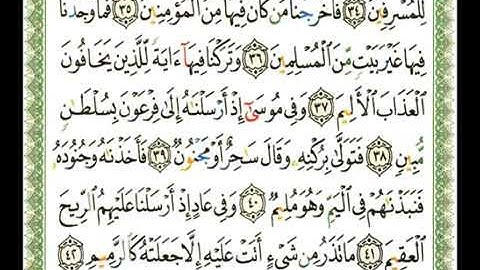 لِّلۡمُسۡرِفِينَ ٣٤ فَأَخۡرَجۡنَا مَن كَانَ فِيهَا مِنَ ٱلۡمُؤۡمِنِينَ ٣٥ فَمَا وَجَدۡنَا
فِيهَا غَيۡرَ بَيۡتٖ مِّنَ ٱلۡمُسۡلِمِينَ ٣٦ وَتَرَكۡنَا فِيهَآ ءَايَةٗ لِّلَّذِينَ يَخَافُونَ
ٱلۡعَذَابَ ٱلۡأَلِيمَ ٣٧ وَفِي مُوسَىٰٓ إِذۡ أَرۡسَلۡنَٰهُ إِلَىٰ فِرۡعَوۡنَ بِسُلۡطَٰنٖ
مُّبِينٖ ٣٨ فَتَوَلَّىٰ بِرُكۡنِهِۦ وَقَالَ سَٰحِرٌ أَوۡ مَجۡنُونٞ ٣٩ فَأَخَذۡنَٰهُ وَجُنُودَهُۥ
فَنَبَذۡنَٰهُمۡ فِي ٱلۡيَمِّ وَهُوَ مُلِيمٞ ٤٠ وَفِي عَادٍ إِذۡ أَرۡسَلۡنَا عَلَيۡهِمُ ٱلرِّيحَ
ٱلۡعَقِيمَ ٤١ مَا تَذَرُ مِن شَيۡءٍ أَتَتۡ عَلَيۡهِ إِلَّا جَعَلَتۡهُ كَٱلرَّمِيمِ ٤٢